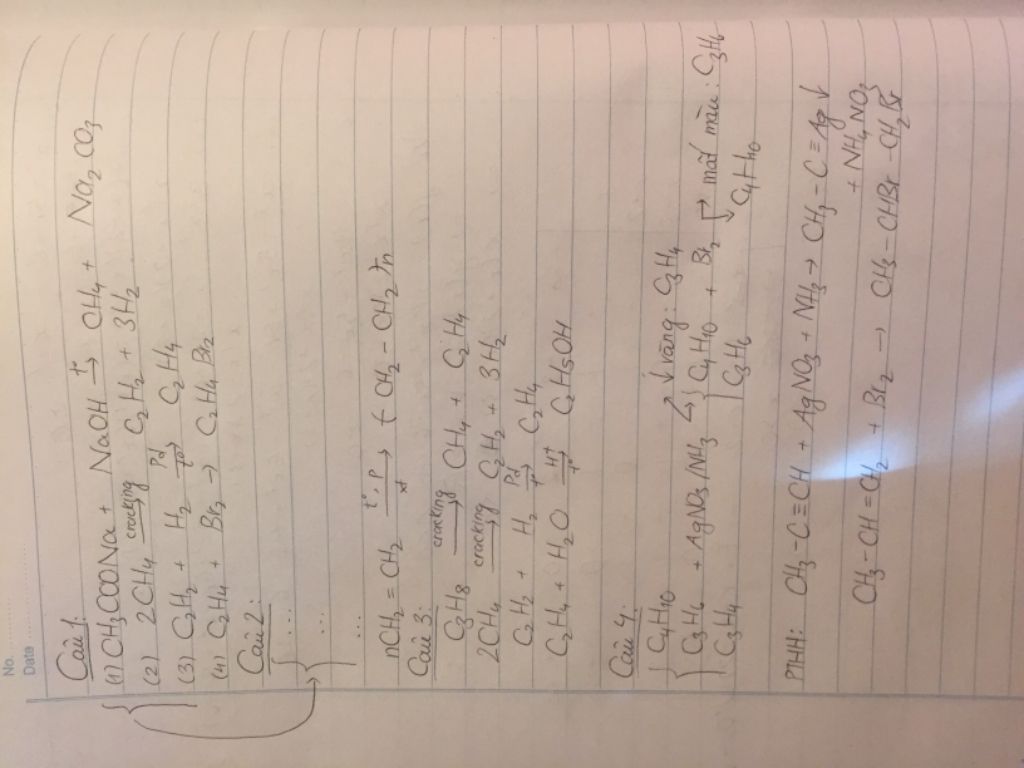 No.
Date
Câu 1.
(1) CH3COONa + NaOH →(t°) CH4 + Na2CO3
(2) 2CH4 →(cracking) C2H2 + 3H2
(3) C2H2 + H2 →(Pd, t°) C2H4
(4) C2H4 + Br2 → C2H4Br2
Câu 2.
...
...
...
nCH2 = CH2 →(t°, P, xt) (CH2 - CH2)n
Câu 3.
C3H8 →(cracking) CH4 + C2H4
2CH4 →(cracking) C2H2 + 3H2
C2H2 + H2 →(Pd, t°) C2H4
C2H4 + H2O →(H+, t°) C2H5OH
Câu 4.
C4H10
C3H6 + AgNO3/NH3 ↓ vàng: C3H4
C3H4
C4H10 + Br2 mất màu: C3H6
C3H6 C4H10
PTHH: CH3-C≡CH + AgNO3 + NH3 → CH3-C≡Ag ↓
+ NH4NO3
CH3-CH=CH2 + Br2 → CH3-CHBr-CH2Br